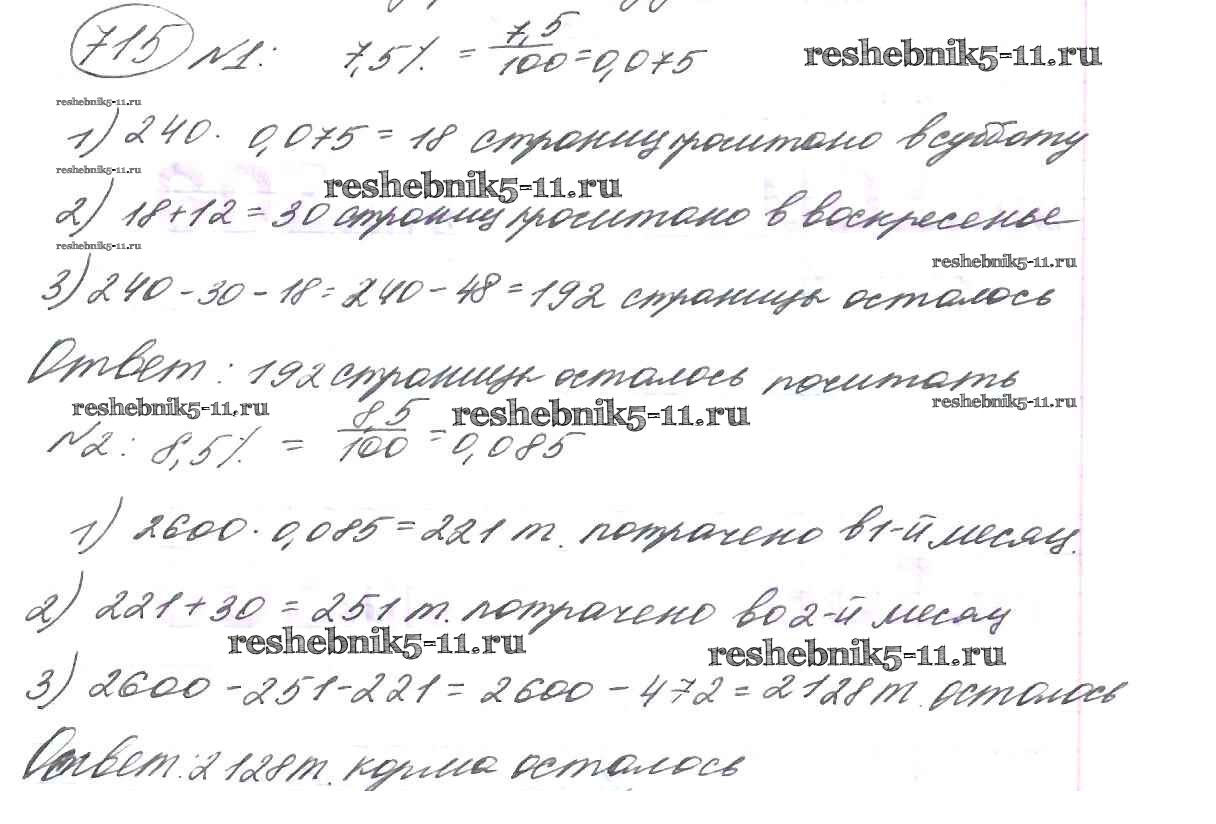 715 №1: 7,5% = 7,5/100 = 0,075
reshebnik5-11.ru
reshebnik5-11.ru
1) 240 · 0,075 = 18 страниц прочитано в субботу
reshebnik5-11.ru
reshebnik5-11.ru
2) 18+12 = 30 страниц прочитано в воскресенье
reshebnik5-11.ru
reshebnik5-11.ru
3) 240 - 30 - 18 = 240 - 48 = 192 страницы осталось
Ответ: 192 страницы осталось почитать
reshebnik5-11.ru
reshebnik5-11.ru
reshebnik5-11.ru
№2: 8,5% = 8,5/100 = 0,085
1) 2600 · 0,085 = 221 т. потрачено в 1-й месяц.
2) 221 + 30 = 251 т. потрачено во 2-й месяц
reshebnik5-11.ru
reshebnik5-11.ru
3) 2600 - 251 - 221 = 2600 - 472 = 2128 т. осталось
Ответ: 2128 т. корма осталось